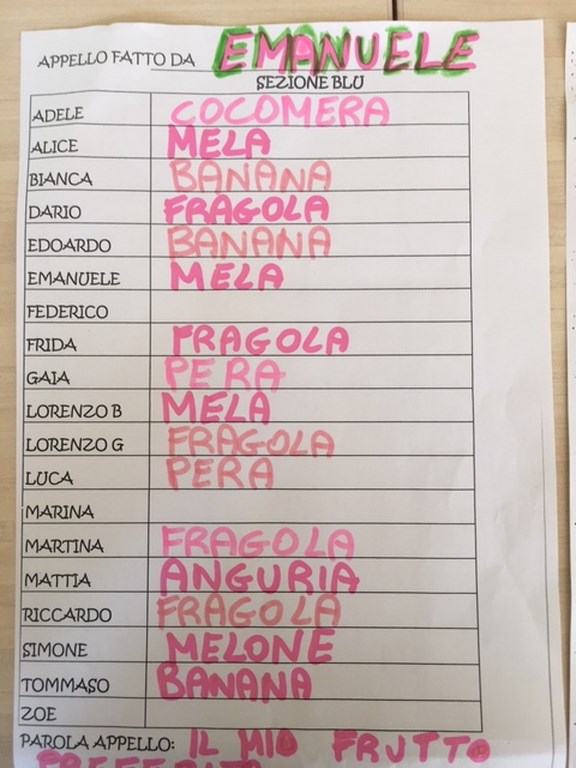 APPELLO FATTO DA EMANUELE
SEZIONE BLU
ADELE COCOMERA
ALICE MELA
BIANCA BANANA
DARIO FRAGOLA
EDOARDO BANANA
EMANUELE MELA
FEDERICO
FRIDA FRAGOLA
GAIA PERA
LORENZO B MELA
LORENZO G FRAGOLA
LUCA PERA
MARINA
MARTINA FRAGOLA
MATTIA ANGURIA
RICCARDO FRAGOLA
SIMONE MELONE
TOMMASO BANANA
ZOE
PAROLA APPELLO: IL MIO FRUTTO